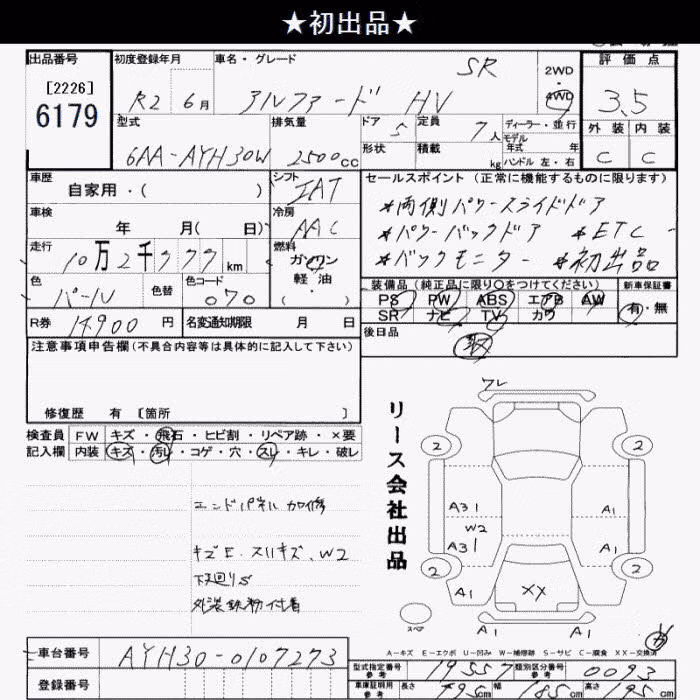 ★初出品★
出品番号
[2226]
6179
初度登録年月
R2 6月
車名・グレード
アルファード HV SR
2WD
・
4WD
評価点
3.5
外装 内装
C C
型式
6AA-AYH30W
排気量
2500cc
ドア 5
定員 7人
形状
積載 kg
ディーラー・並行
モデル
年式 年
ハンドル 左・右
車歴
自家用・( )
車検
年 月( 日)
走行
10万2千777km
色
パール
色替
色コード
070
シフト
IAT
冷房
AAC
燃料
ガソリン
軽油
( ・ )
R券 14900円
名変通知期限 月 日
セールスポイント(正常に機能するものに限ります)
*両側パワースライドドア
*パワーバックドア *ETC
*バックモニター *初出品
装備品(純正品に限り○をつけてください)
PS PW ABS エアB AW
SR ナビ TV カワ
新車保証書
有・無
後日品
取
注意事項申告欄(不具合内容等は具体的に記入して下さい)
修復歴 有 〔箇所 〕
検査員
記入欄
FW キズ・飛石・ヒビ割・リペア跡・×要
内装 キズ・汚レ・コゲ・穴・スレ・キレ・破レ
エンドパネル加修
キズE・スリキズ、W2
下廻りS
外装鉄粉付着
リース会社出品
ワレ
2 2
A31 A1
W2
A31 A1
2 2
A1 XX A1
A1 A1
スペア
A-キズ E-エクボ U-凹み W-補修跡 S-サビ C-腐食 XX-交換済
車台番号 AYH30-0107273
登録番号
型式指定番号
参考
19557
類別区分番号
参考
0093
車庫証明用
参考
長さ 495cm 幅 185cm 高さ 195cm